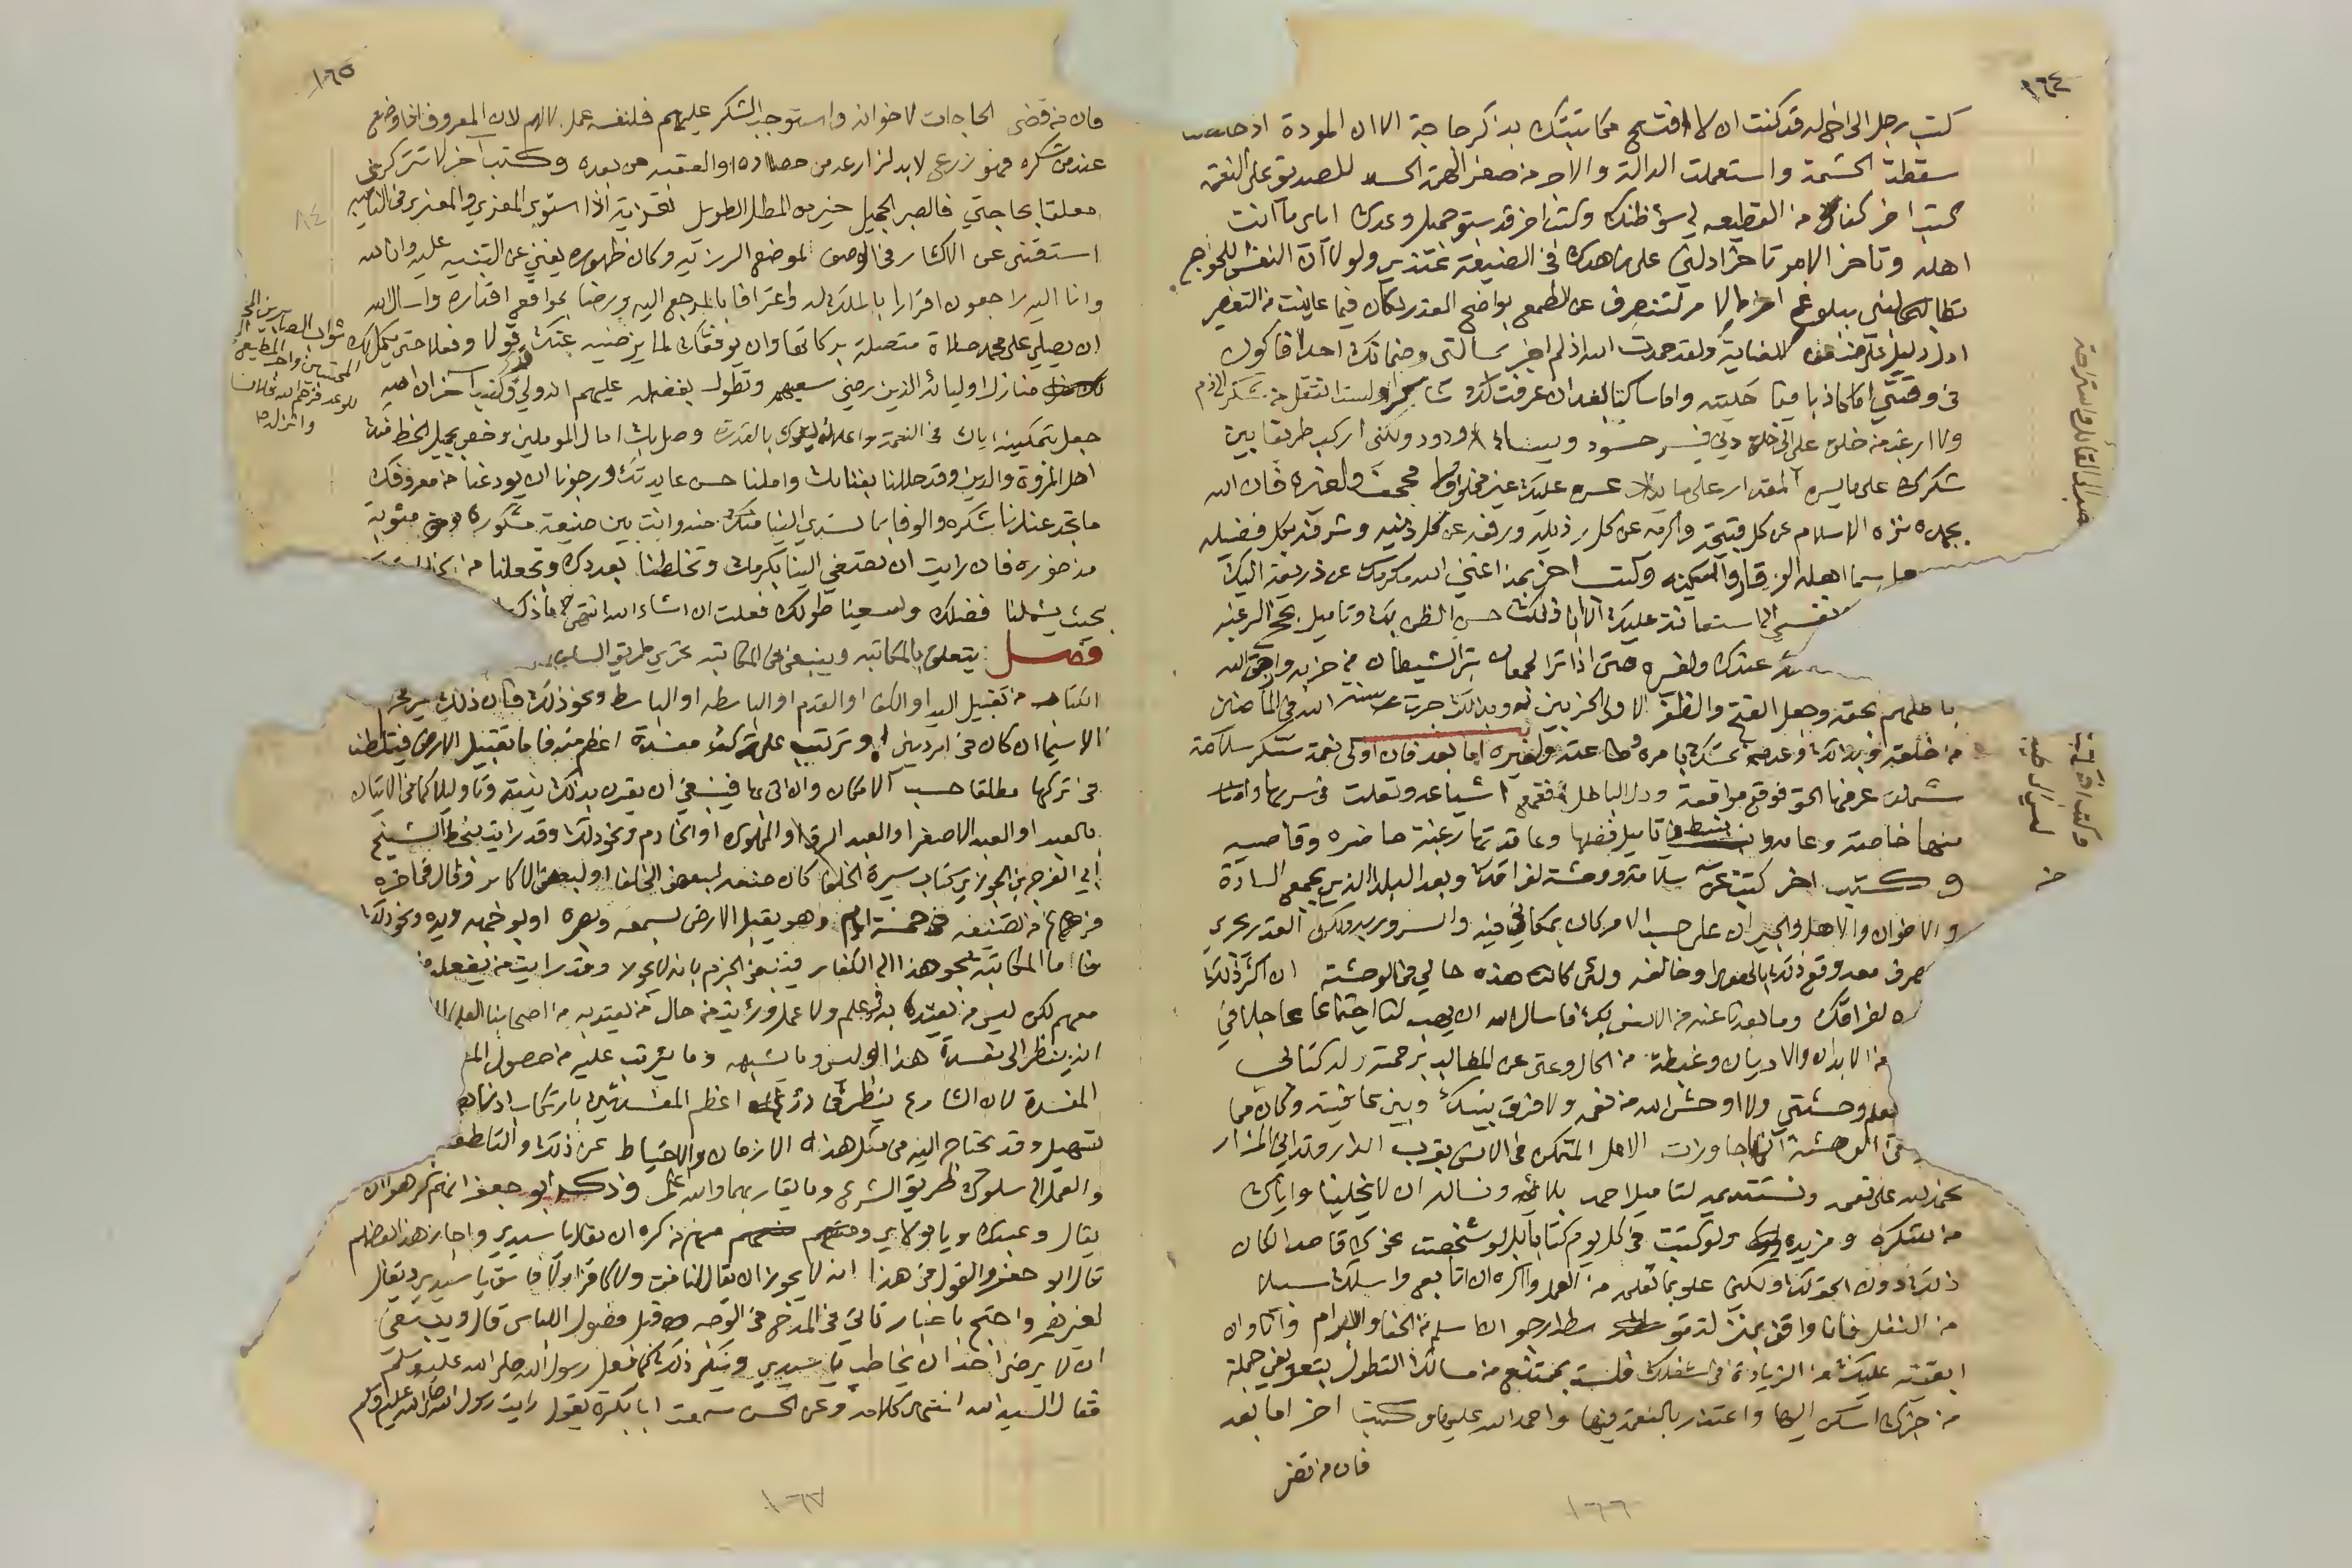 ١٦٤
كتب رجل الى اخ له قد كنت ان لا افتتح مكاتبتك بذكر حاجة الا ان المودة اذا
سقطت الحشمة واستعملت الدالة والامر من صغر الهمة الحسد للصديق على النعمة
كتب اخر كفاك من القطيعه لي سوء ظنك وكتب اخر قد سبق جميل وعدك اياي ما انت
اهله وتاخر الامر تاخرا دلني على زهدك في الصنيعة عندي ولولا ان النفس اللجوج
تطالبني ببلوغ اخر الامر لتنصرف عن الطمع بواضح العذر لكان فيما عاينت من التقصير
ادل دليل على ضعف العناية ولقد حمدت الله اذ لم اخبر بمسالتي وضمانك احدا فاكون
في وقتي اما كاذبا فيما حكيته واما ساكتا بعد ان عرفت لك شاكرا ولست انتقل من شكر الى ذم
ولا ارغب من خلق على الى خلق دني فيسر حسود ويساء ودود ولكني اركب طريقا بين
شكرك على ما يسره المقدار على ما عسره عليك غير مخلوط محجف ولغيره فان الله
بحمده نزه الاسلام عن كل قبيحة واكرمه عن كل رذيلة ورفعه عن كل دنية وشرفه بكل فضيله
سيما اهله الوقار والسكينه وكتب اخر بهذا اغنى الله بكرمك عن ذريعة اليك
نفسي الاستعانة عليك الا ابا ذلك حسن الظن بك وتاميل نجح الرغبه
عندك ولغيره حتى اذا ترا الجمعان تبرا الشيطان من حزبه وازهق الله
باطلهم بحقه وجعل الفتح والظفر لاولى الحزبين به وبذلك جرت سنة الله في الماضين
من خلقه وبذلك وعد من تمسك بامره وطاعته ولغيره اما بعد فان اولى نعمة تشكر سلامة
شملت عز فيها الحق فوقع مواقعه وذل الباطل فقمع اشياعه وتقلبت في سربها وامنها
منها خاصة وعامة تاميل فضلها وعاقد تها رغبة حاضره وقاصيه
وكتب اخر كتبت عن سلامة ووحشة لفراقك وبعد البلد الذي يجمع السادة
والاخوان والاهل والجيران على حسب الامر كان بمكاني فيه والسرور به ولكن القدر يجري
فيصرف معه وقع ذلك بالهوى او خالفه ولئن كانت هذه حالي في الوحشة ان اكثر ذلك
لفراقك وما بعدنا عنه من الانس بك فاسال الله ان يهب لنا اجتماعا عاجلا في
من الابدان والاديان وغبطة من الحال وغنى عن المطالب برحمته وله كتابي
وحشتي ولا اوحش الله من نعمه ولا فرق بينك وبين عافيته وكان مما
في الوحشة انها جاورات الامل المتمكن في الانس بقرب الدار وتداني المزار
نحمد الله على نعمه ونستديم لتاميل احمد بلائه ونساله ان لا يخلينا واياك
من شكره ومزيده ولو كتبت في كل يوم كتابا بل لو شخصت نحوك قاصدا لكان
ذلك دون الحق لك ولكني علو بما تعلمه من العمل واكره ان اتابعه واسلك سبيلا
من الثقل فانا واقف بمنزلة متوسطة ارجو ان اسلم من الجفاء والابرام وانا وان
ابقيت عليك من الزيادة في شغلك فلست بممتنع من مسالتك التطول بتعريفي جملة
من خبرك اسكن اليها واعتد بالنعمة فيها واحمد الله عليها وكتب اخر اما بعد
فان من قضى
صدا القائل واستراحة
وكتب اخر
١٦٦
١٦٥
فان من قضى الحاجات لاخوانه واستوجب الشكر عليهم فلنفسه عمل لا لهم لان المعروف اذا وضع
عند من شكره فهو زرع لا بد لزارعه من حصاده او لعقبه من بعده وكتب اخر لا تتركني
معلقا بحاجتي فالصبر الجميل خير من المطل الطويل تعزية اذا استوى المعزي والمعزى في النائبه
استغنى عن الاكثار في الوصف لموضع الرزية وكان ظهوره يغني عن التنبيه عليه وانا لله
وانا اليه راجعون اقرارا بالملكة له واعترافا بالمرجع اليه ورضا بمواقع اقداره واسال الله
ان يصلي على محمد صلاة متصلة بركاتها وان يوفقك لما يرضيه عنك قولا وفعلا حتى يكمل لك ثواب الصابرين
منازل اوليائه الذين رضي سعيهم وتطول بفضله عليهم انه ولي قدير وكتب اخر ان الله
جعل بتمكينه اياك في النعمة واعلائه يدك بالقدرة وصل بك امال المؤملين وخص بجميل الحظ منك
اهل المروة والدين وقد حللنا بفنائك واملنا حسن عايدتك ورجونا ان يودعنا من معروفك
ما نجد عندنا شكره والوفا بما تسدي الينا منك وانت بين صنيعة مشكوره ومثوبة
مذخوره فان رايت ان تصغي الينا بكرمك وتخلطنا بعددك وتجعلنا من
بحيث يشملنا فضلك ويسعنا طولك فعلت ان شاء الله انتهى ما ذكره
فصل يتعلق بالمكاتبه وينبغي في المكاتبه تحري طريق السلف
الكتاب من تقبيل اليد او الكف او القدم او الباسطه او الباسط ونحو ذلك فان ذلك
لاسيما ان كان في امر ديني او ترتب على تركه مفسدة اعظم منه فاما تقبيل الارض فيتلطف
في تركها مطلقا حسب الامكان وان اتى بها فينبغي ان يقرن بذلك نية وتاويلا كما في الاتيان
بالعبد او العبد الاصغر او العبد الرق او المملوك او الخادم ونحو ذلك وقد رايت بخط الشيخ
ابي الفرج بن الجوزي كتاب سيرة الخلفا كان صنفه لبعض الخلفا او لبعض الاكابر وقال في اخره
فرغ من تصنيفه في خمسة ايام وهو يقبل الارض بسمعه وبصره او بوجهه ويده ونحو ذلك
فاما المكاتبة بنحو هذا الى الكفار فينبغي الجزم بانه لا يجوز وقد رايت من يفعله
معهم لكن ليس من يعتد به في علم ولا عمل ورايت من حال من يعتد به من اصحابنا
انه ينظر الى مفسدة هذا وما يشبهه وما يترتب عليه من حصول
المفسدة لان الشارع ينظر في درء اعظم المفسدتين بارتكاب ادناهما
لتسهيل وقد يحتاج اليه في مثل هذه الازمان والاحتياط عن ذلك والتلطف
والعمل الى سلوك طريق الشرع وما يقاربها والله اعلم وذكر ابو جعفر انهم كرهوا ان
يقال وعبدك ويا مولاي ومنهم من ذكره ان يقال يا سيدي واجاز هذا بعضهم
قال ابو جعفر والقول في هذا انه لا يجوز ان يقال لمنافق ولا كافر ولا فاسق يا سيدي ويقال
لغيرهم واحتج باخبار تاتي في المدح في الوجه قبل فصول اللباس قال وينبغي
ان لا يرضى احد ان يخاطب بيا سيدي وينكر ذلك كما فعل رسول الله صلى الله عليه وسلم
فقال السيد الله انتهى كلامه وعن الحسن سمعت ابا بكرة يقول رايت رسول الله صلى الله عليه وسلم
٨٤
١٦٧